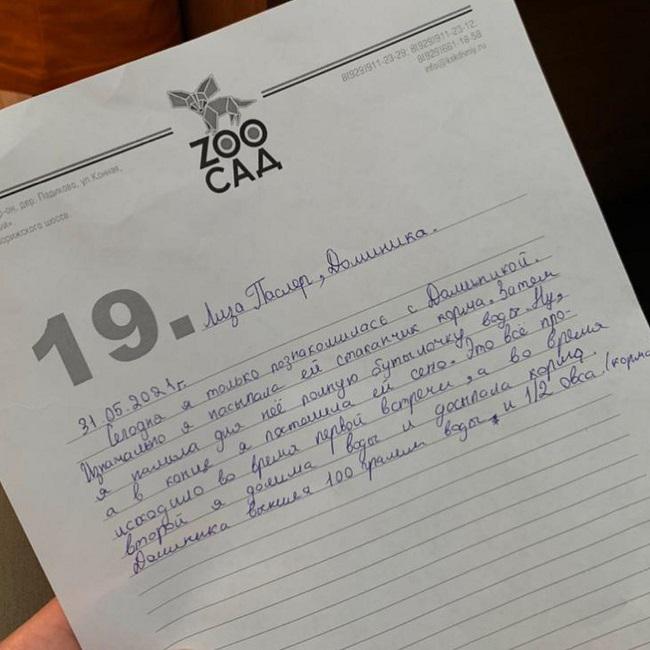 8(929)911-23-29; 8(929)911-23-12;
8(929)661-18-58
info@kskdiviy.ru
ZOO
САД
р-он, дер. Падиково, ул. Конная,
рижского шоссе.
19. Лиза Паслер, Доминика.
31.05.2021г.
Сегодня я только познакомилась с Доминикой.
Изначально я насыпала ей стаканчик корма. Затем
я налила для неё полную бутылочку воды. Ну,
а в конце я постелила ей сено. Это всё про-
исходило во время первой встречи, а во время
второй я долила воды и досыпала корма.
Доминика выпила 100 грамм воды и 1/2 овса. (корма